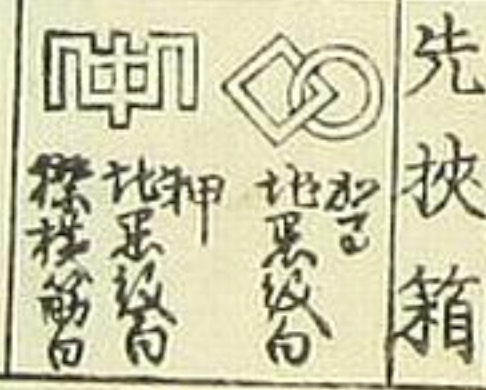 先挾箱
加子
地黒紋白
押
地黒紋白
襟横筋白